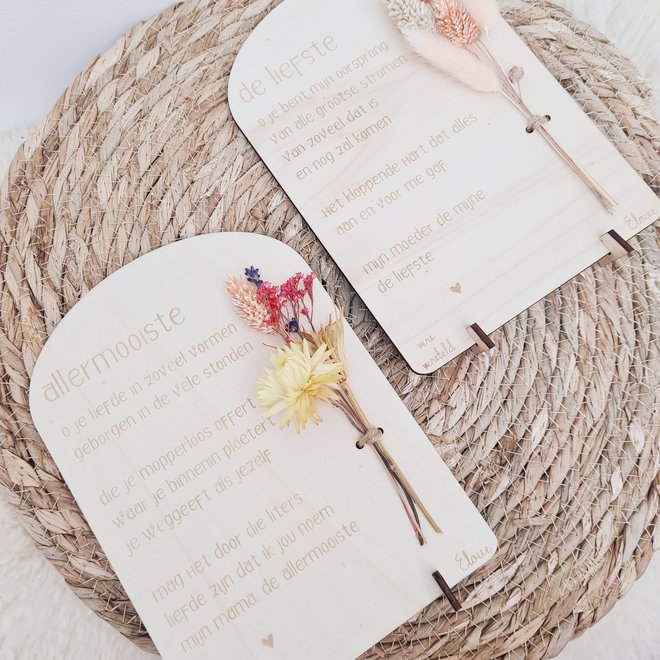 de liefste
o je bent mijn oorsprong
van alle grootse stromen
van zoveel dat is
en nog zal komen
Het kloppende hart dat alles
aan en voor me gaf
mijn moeder de mijne
de liefste
Eloise
vers
verteld
allermooiste
o je liefde in zoveel vormen
geborgen in de vele stonden
die je mopperloos offert
waar je binnenin ploetert
je weggeeft als jezelf
mag het door die liters
liefde zijn dat ik jou noem
mijn mama, de allermooiste
Eloise